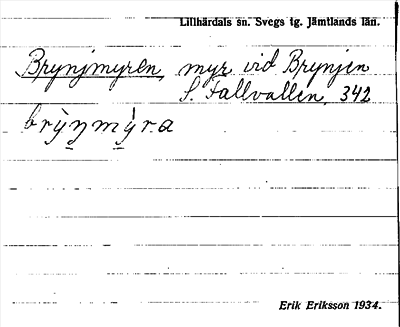 Lillhärdals sn. Svegs tg. Jämtlands län.
Brynjmyren, myr vid Brynjen
S. Fallvallen, 342
brỳnmỳra
Erik Eriksson 1934.